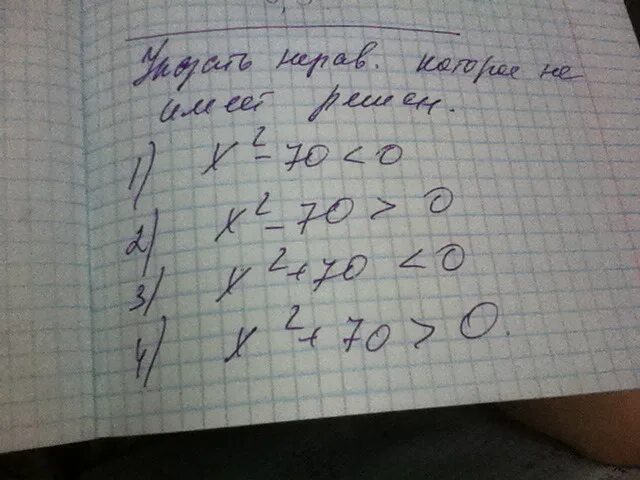 Указать нерав. которое не
имеет решен.
1) x² - 70 < 0
2) x² - 70 > 0
3) x² + 70 < 0
4) x² + 70 > 0.